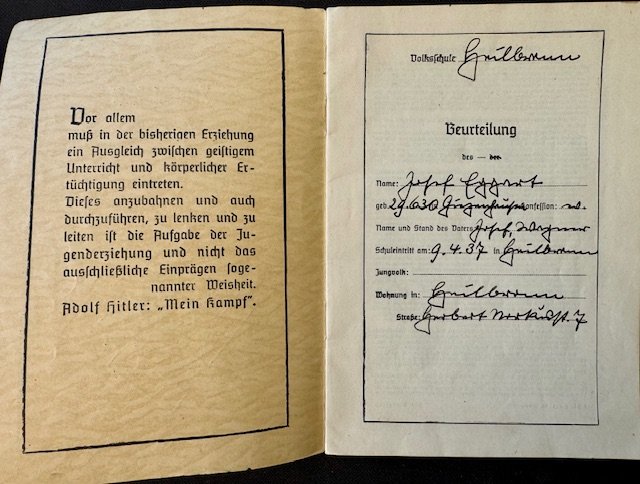 Vor allem
muß in der bisherigen Erziehung
ein Ausgleich zwischen geistigem
Unterricht und körperlicher Er-
tüchtigung eintreten.
Dieses anzubahnen und auch
durchzuführen, zu lenken und zu
leiten ist die Aufgabe der Ju-
genderziehung und nicht das
ausschließliche Einprägen soge-
nannter Weisheit.
Adolf Hitler: „Mein Kampf“.
Volksschule Heilbronn
Beurteilung
des — der
Name: Josef Eggert
geb. 29.6.30 Konfession:
Name und Stand des Vaters Josef, Wagner
Schuleintritt am: 9.4.37 in Heilbronn
Jungvolk:
Wohnung in: Heilbronn
Straße: Herbert Norkusst. 7